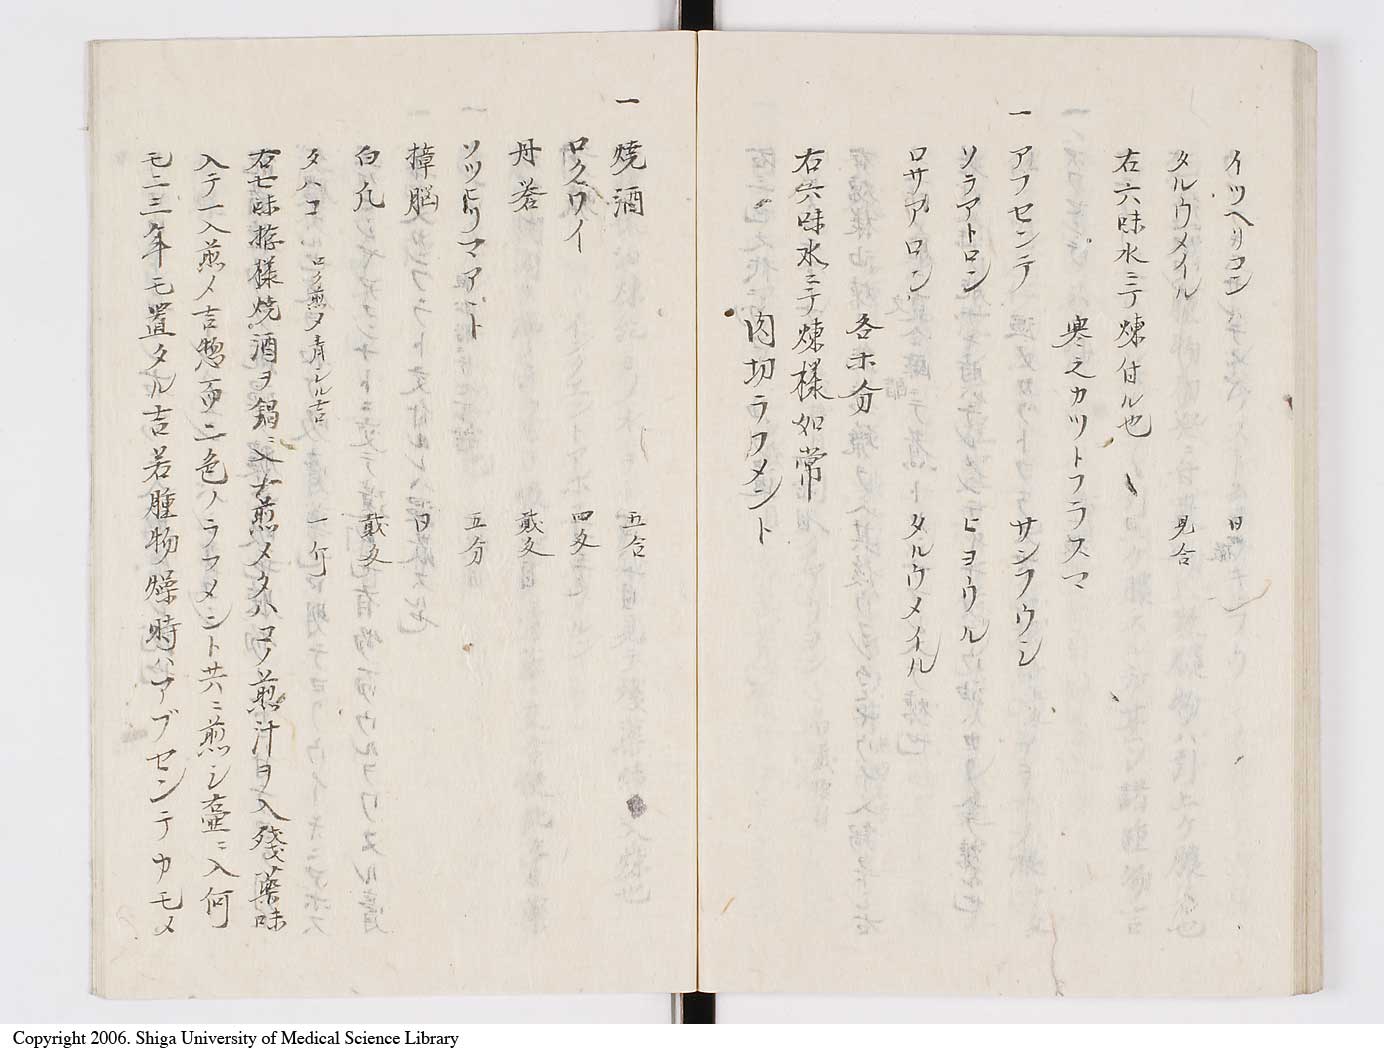 イツヘリコン 日
タルウメイル 見合
右六味水ニテ煉付ル也
寒之カツトフラスマ
一 アフセンテ サンフウン
ソラアトロン ヒヨウル
ロサアロン タルウメイル
各ホ分
右六味水ニテ煉様如常
肉切ラフメント
一 焼酒 五合
ロクワイ 四匁
丹礬 貳匁
ソツヒリマアト 五分
樟脳 日
白凡 貳匁
タハコ ロク煎タ青シル吉 一斤
右七味拵様焼酒ヲ鍋ニ入煎メタハコノ煎汁ヲ入殘藥味
入テ一入煎〆吉惣而二色ノラフメント共ニ煎シ壷ニ入何
モ二三年モ置タル吉若腫物燥時ハアブセンテカモメ
Copyright 2006. Shiga University of Medical Science Library